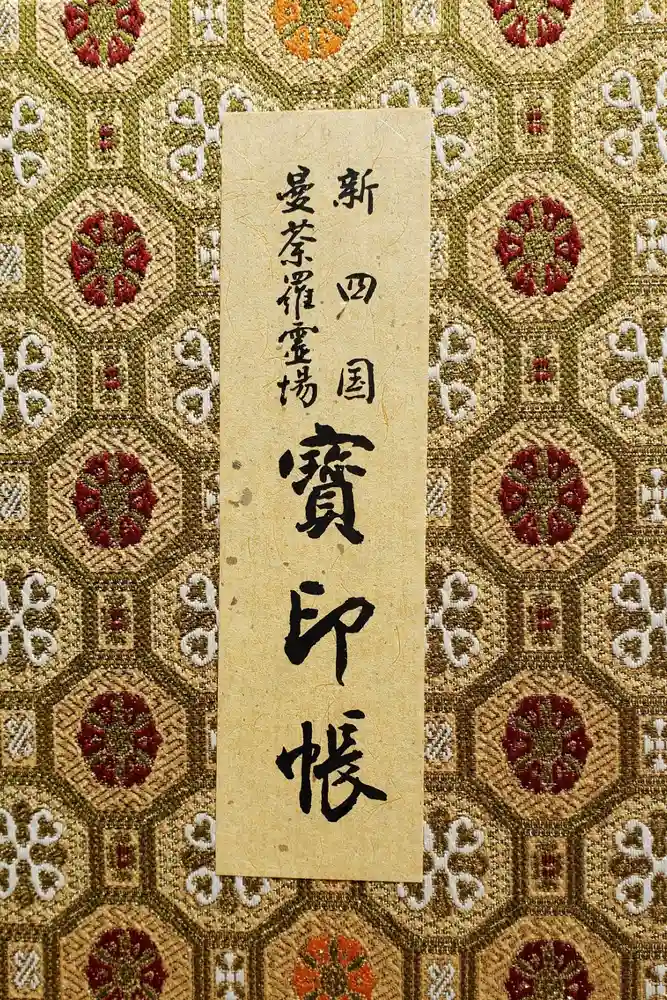 新四国
曼荼羅霊場
寶印帳